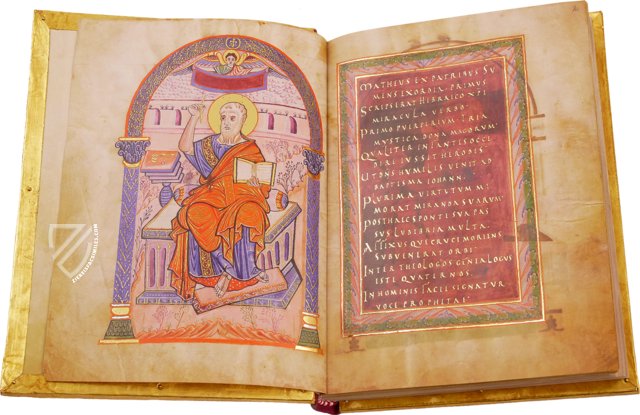 MATHEUS EX PATRIBUS SU
MENS EXORDIA PRIMUS
SCRIPSERAT HEBRAICO XPI
MIRACULA VERBO
PRIMO PUERPERIUM TRIA
MYSTICA DONA MAGORUM
QUALITER INFANTIS OCCI
DERE IUSSIT HERODIS
UT DNS HUMILIS VENIT AD
BAPTISMA IOHANN
PLURIMA VIRTUTUM ME
MORAT MIRANDA SUARUM
POST HAEC SPONTE SUA PAS
SUS LUDIBRIA MULTA
AFFIXUS QUE CRUCI MORIENS
SUBVENERAT ORBI
INTER THEOLOGOS GENEALOGUS
ISTE QUATERNOS
IN HOMINIS FACIE SIGNATUR
VOCE PROPHETAE
ZIEREISFACSIMILES.COM